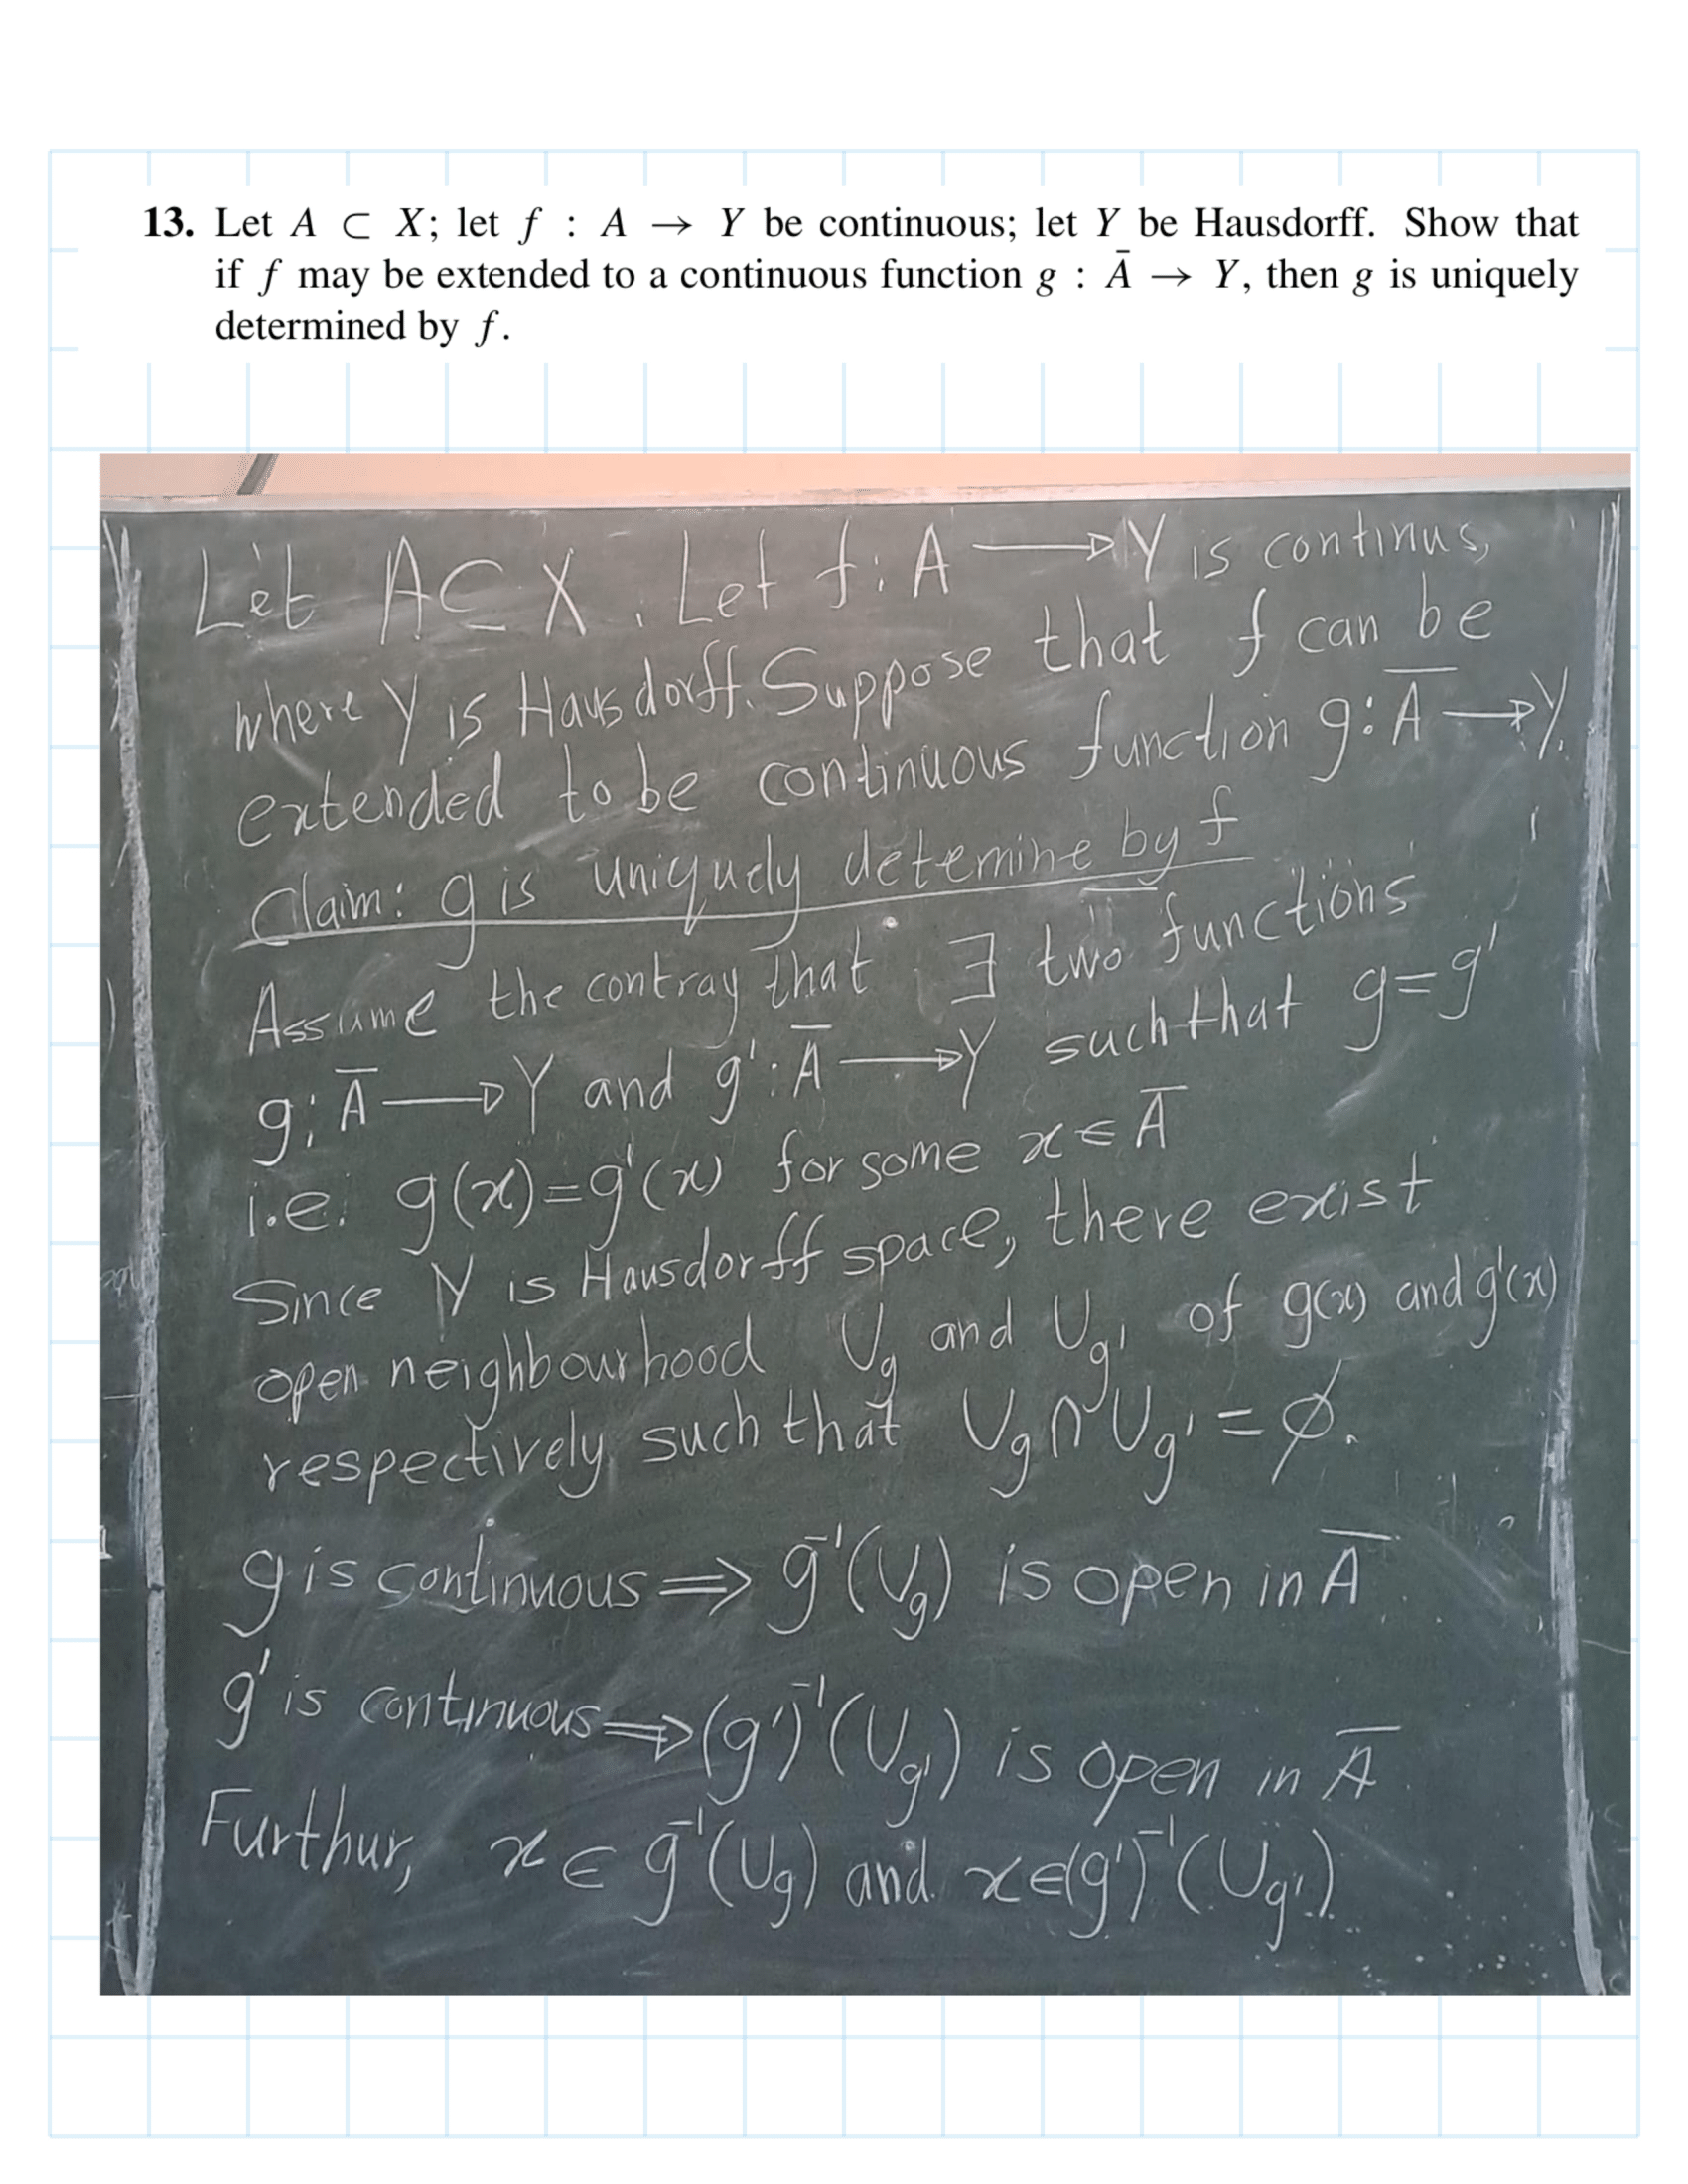 13. Let A ⊂ X; let f : A → Y be continuous; let Y be Hausdorff. Show that
if f may be extended to a continuous function g : Ā → Y, then g is uniquely
determined by f.
Let A ⊆ X. Let f: A → Y is continus,
where Y is Hausdorff. Suppose that f can be
extended to be continuous function g: Ā → Y.
Claim: g is uniquely detemine by f
Assume the contray that ∃ two functions
g: Ā → Y and g': Ā → Y such that g=g'
i.e. g(x)=g'(x) for some x ∈ Ā
Since Y is Hausdorff space, there exist
open neighbourhood U_g and U_g' of g(x) and g'(x)
respectively such that U_g ∩ U_g' = ∅.
g is continuous ⇒ g⁻¹(U_g) is open in Ā
g' is continuous ⇒ (g')⁻¹(U_g') is open in Ā
Furthur, x ∈ g⁻¹(U_g) and x ∈ (g')⁻¹(U_g').